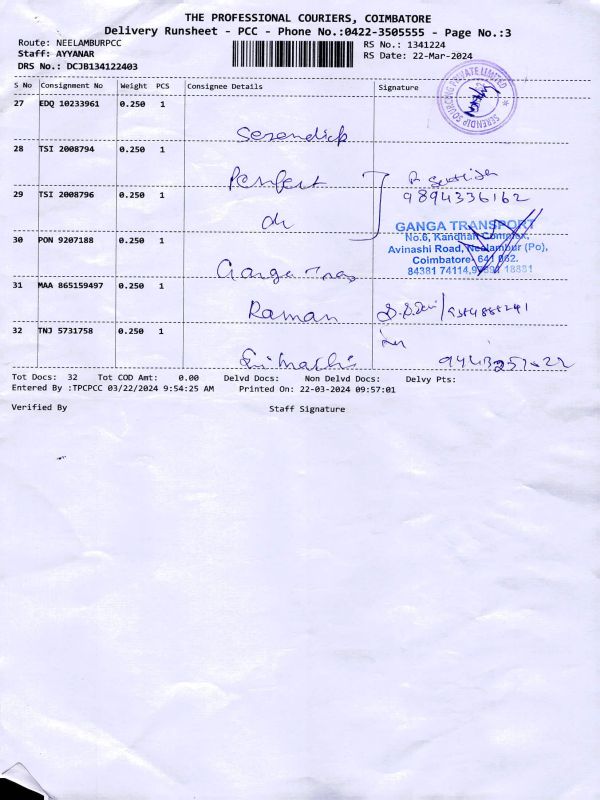 THE PROFESSIONAL COURIERS, COIMBATORE
Delivery Runsheet - PCC - Phone No.:0422-3505555 - Page No.:3
Route: NEELAMBURPCC
Staff: AYYANAR
DRS No.: DCJB134122403
RS No.: 1341224
RS Date: 22-Mar-2024
S No Consignment No Weight PCS Consignee Details Signature
SERENDIP SOURCING PRIVATE LIMITED
27 EDQ 10233961 0.250 1
Serendip
28 TSI 2008794 0.250 1
Perfect
9894336162
29 TSI 2008796 0.250 1
do
GANGA TRANSPORT
No.6, Kandhan Complex,
Avinashi Road, Neelambur (Po),
Coimbatore- 641 062.
84381 74114, 18881
30 PON 9207188 0.250 1
Ganga Trans
31 MAA 865159497 0.250 1
Raman
32 TNJ 5731758 0.250 1
Tot Docs: 32 Tot COD Amt: 0.00 Delvd Docs: Non Delvd Docs: Delvy Pts:
Entered By :TPCPCC 03/22/2024 9:54:25 AM Printed On: 22-03-2024 09:57:01
Verified By Staff Signature